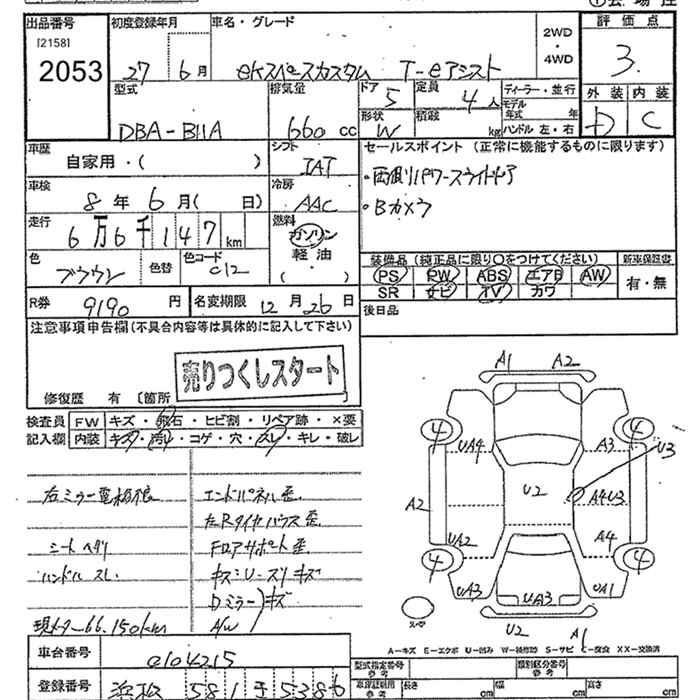 出品番号 初度登録年月 車名・グレード 2WD・4WD 評価点
[2158]
2053 27 6月 eKスペースカスタム T-eアシスト 3.
型式 排気量 ドア 定員 ディーラー・並行 外装 内装
DBA-B11A 660cc 5 4人 モデル年式 年 D C
形状 W 積載 kg ハンドル 左・右
車歴 シフト セールスポイント (正常に機能するものに限ります)
自家用・( ) IAT ・両側パワースライドドア
車検 冷房 ・Bカメラ
8年 6月( 日) AAC
走行 燃料
6万6千147km ガソリン・軽油・( )
色 色替 色コード 装備品 (純正品に限り○をつけてください) 新車保証書
ブラウン C12 PS PW ABS エアB AW 有・無
SR ナビ TV カワ
R券 9190円 名変期限 12月26日 後日品
注意事項申告欄(不具合内容等は具体的に記入して下さい)
売りつくしスタート
修復歴 有 [箇所
検査員 FW キズ・飛石・ヒビ割・リペア跡・×要
記入欄 内装 キズ・汚れ・コゲ・穴・スレ・キレ・破レ
右ミラー電格狼 エンドパネル歪
左Rタイヤハウス歪
シートヘタリ Fロアサポート歪
ハンドルスレ キズ:リーズリキズ
Dミラーキズ
現メーター66,150km A/W
A1 A2
4 4
UA4 A3 U3
A2 U2 A4U3
UA2 A4
4 4
UA3 UA3 UA1
スペア U2 A1
A=キズ E=エクボ U=凹み W=補修跡 S=サビ C=腐食 XX=交換済
車台番号 0104215 型式指定番号 参考 類別区分番号 参考
登録番号 浜松 581 チ 5386 車庫証明用 参考 長さ cm 幅 cm 高さ cm